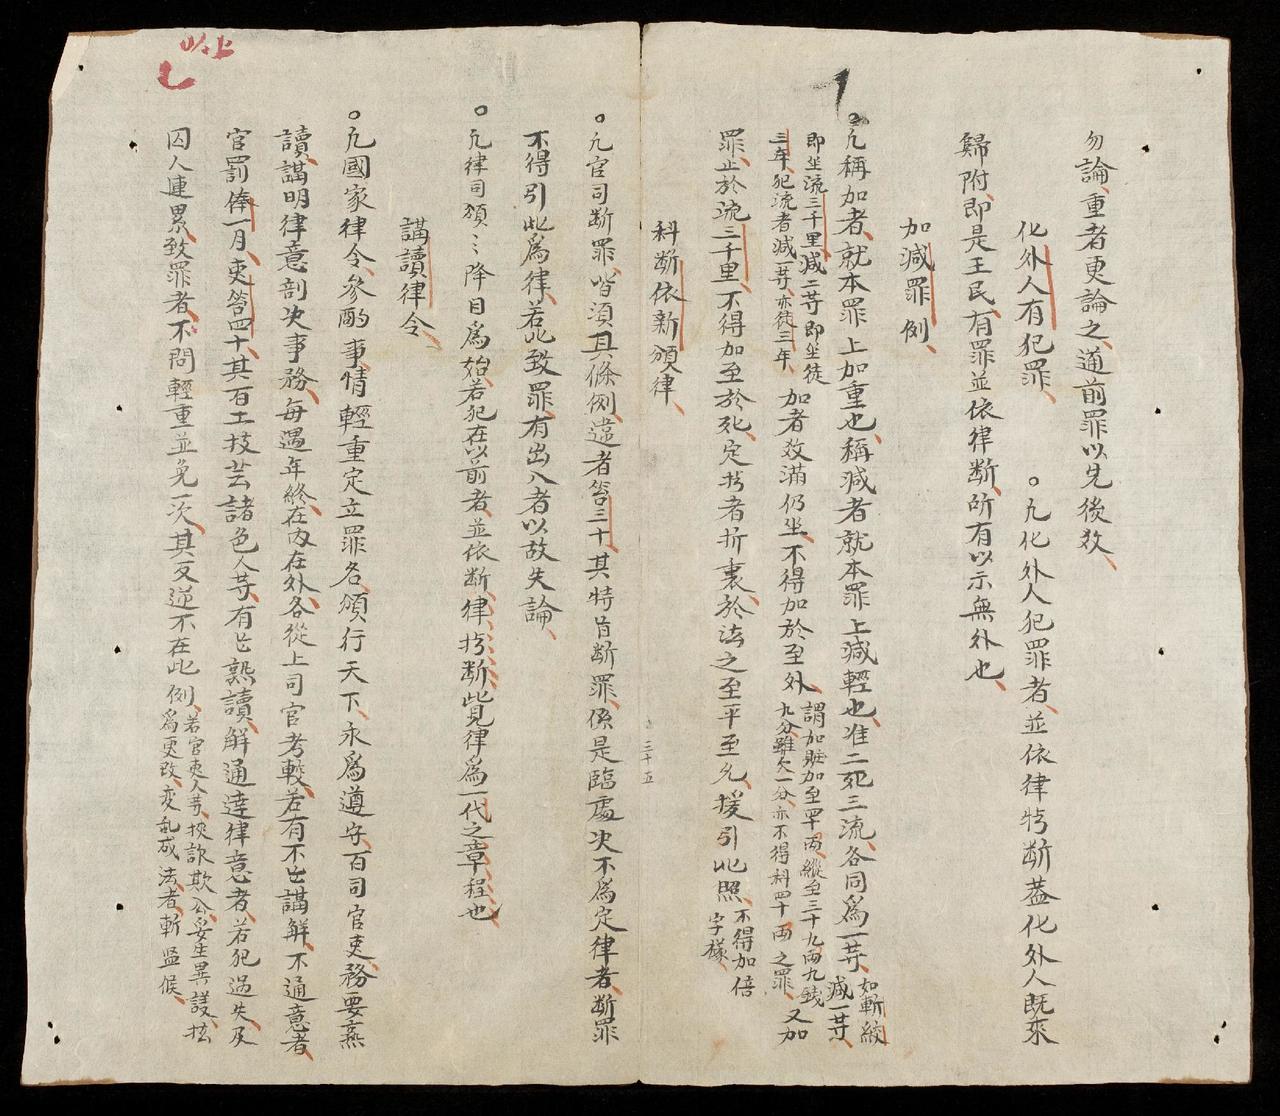 勿論、重者更論之、通前罪以先後效、
化外人有犯罪、 ○凡化外人犯罪者、並依律拟断、盖化外人既來
歸附、即是王民、有罪並依律断、所有以示無外也、
加減罪例、
○凡稱加者、就本罪上加重也、稱减者就本罪上减輕也、惟二死三流、各同爲一䓁、如斬絞
减一䓁
即坐流三千里、减二䓁即坐徒
三年、犯流者减一䓁、亦徒三年、
加者效滿仍坐、不得加於至外、
謂加贓加至四十兩、縱至三十九兩九錢
九分、雖欠一分、亦不得科四十兩之罪、
又加
罪止於流三千里、不得加至於死、定拟者折衷於法之至平至允、援引比照、不得加倍
字樣、
科断依新頒律、
三十五
○凡官司断罪、皆須具條例、違者笞三十、其特旨断罪、係是臨處决不爲定律者、断罪
不得引此爲律、若此致罪有出入者以故失論、
○凡律司頒〻降日爲始、若犯在以前者、並依断律拟断、此見律爲一代之章程也、
講讀律令、
○凡國家律令、參酌事情輕重定立罪名、頒行天下、永爲遵守、百司官吏、務要熟
讀、講明律意剖决事務、每遇年終、在內在外、各從上司官考較、若有不䏻講解、不通意者、
官罰俸一月、吏笞四十、其百工技芸諸色人䓁、有䏻熟讀、解通達律意者、若犯過失及
囚人連累致罪者、不問輕重並免一次、其反逆不在此例、若官吏人䓁、挾詐欺公、妄生異議、拡
爲更改、变乱成法者、斬监候、